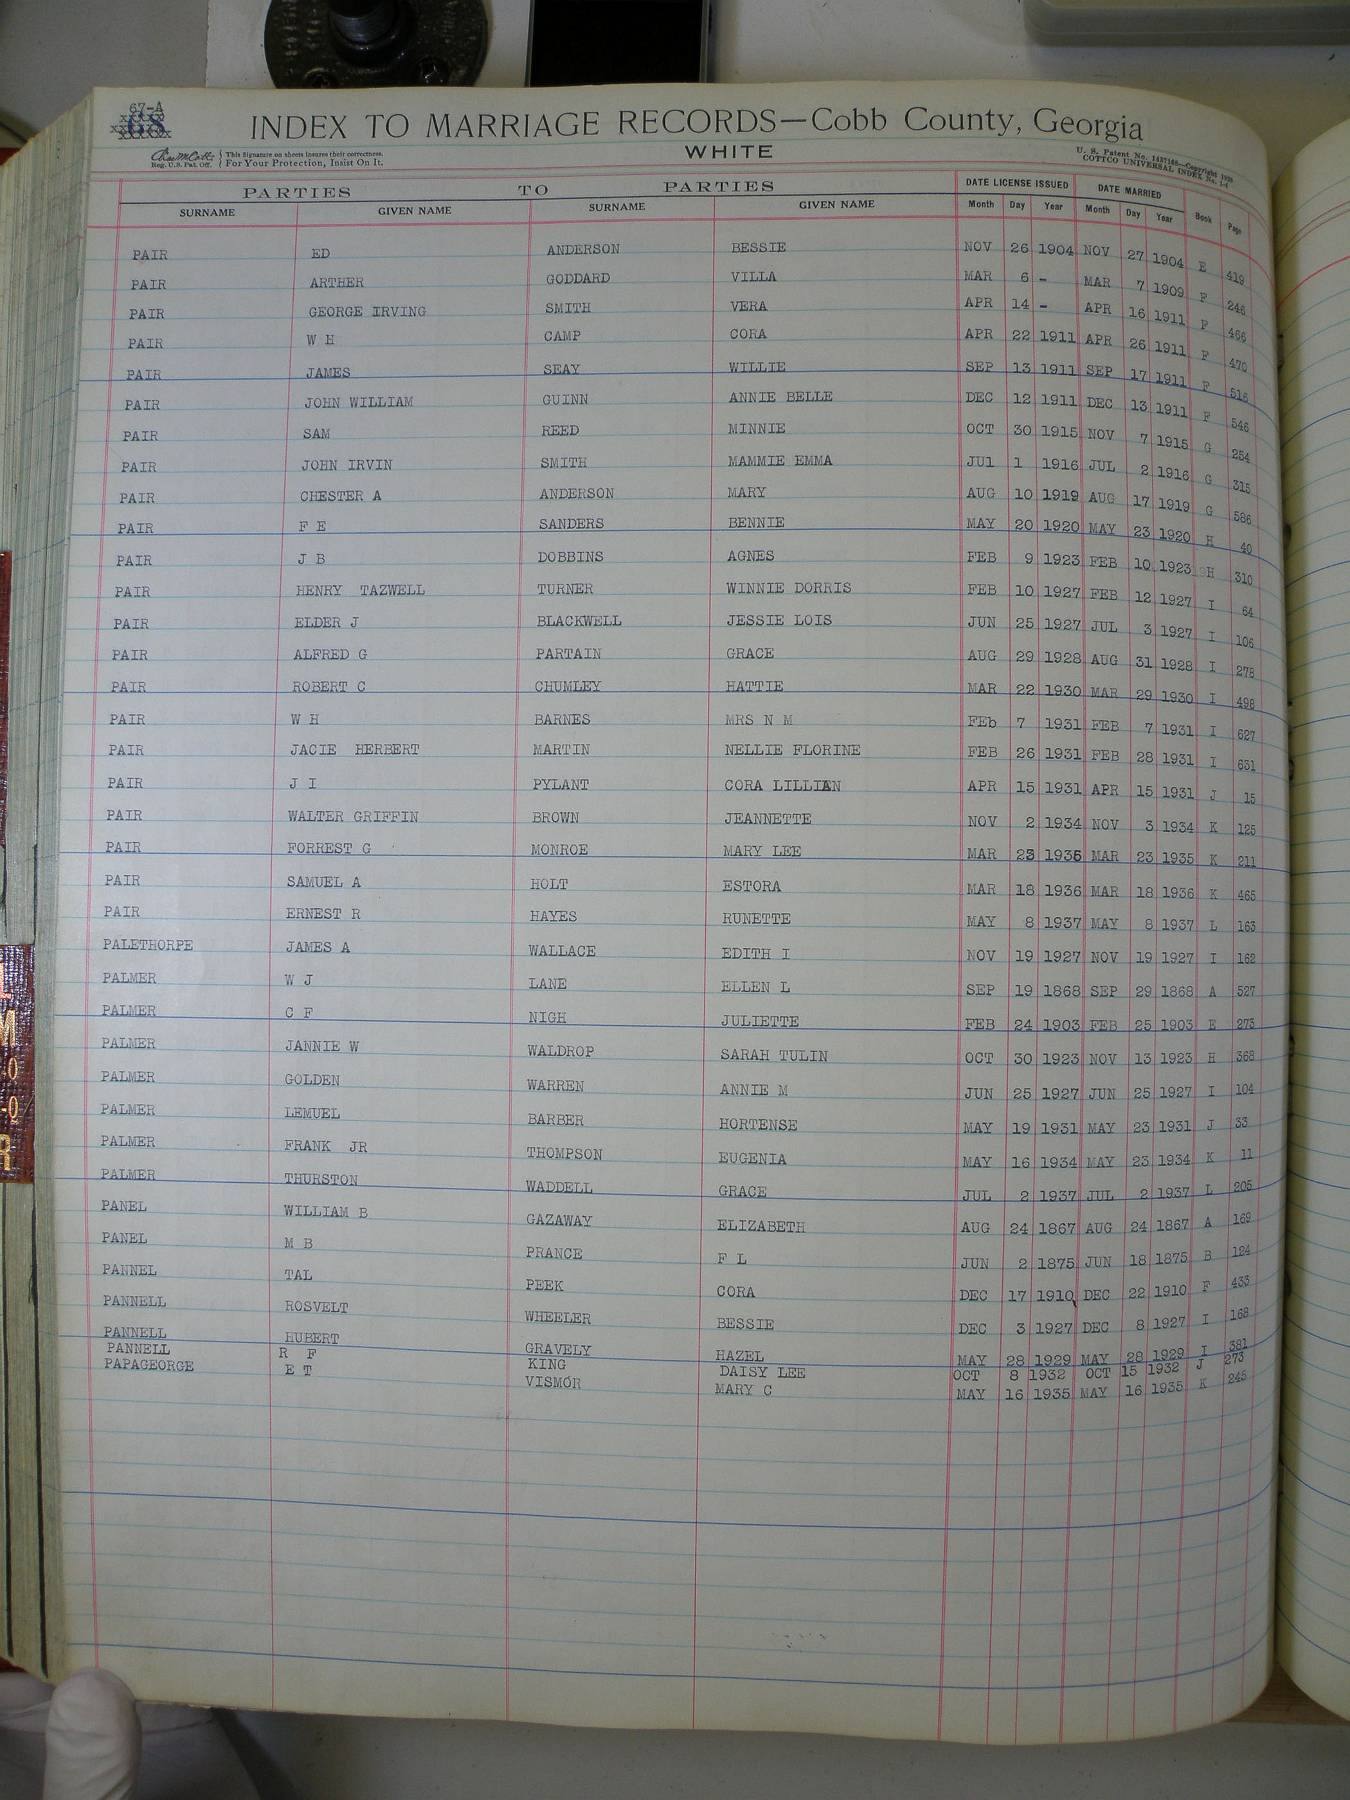 67-A
68
INDEX TO MARRIAGE RECORDS—Cobb County, Georgia
WHITE
Reg. U.S. Pat. Off. This Signature on sheets insures their correctness. For Your Protection, Insist On It.
U. S. Patent No. Copyright
COTTCO UNIVERSAL INDEX No.
PARTIES TO PARTIES DATE LICENSE ISSUED DATE MARRIED
SURNAME GIVEN NAME SURNAME GIVEN NAME Month Day Year Month Day Year Book Page
PAIR ED ANDERSON BESSIE NOV 26 1904 NOV 27 1904 E 419
PAIR ARTHER GODDARD VILLA MAR 6 - MAR 7 1909 F 246
PAIR GEORGE IRVING SMITH VERA APR 14 - APR 16 1911 F 466
PAIR W H CAMP CORA APR 22 1911 APR 26 1911 F 470
PAIR JAMES SEAY WILLIE SEP 13 1911 SEP 17 1911 F 516
PAIR JOHN WILLIAM GUINN ANNIE BELLE DEC 12 1911 DEC 13 1911 F 546
PAIR SAM REED MINNIE OCT 30 1915 NOV 7 1915 G 254
PAIR JOHN IRVIN SMITH MAMMIE EMMA JUl 1 1916 JUL 2 1916 G 315
PAIR CHESTER A ANDERSON MARY AUG 10 1919 AUG 17 1919 G 586
PAIR F E SANDERS BENNIE MAY 20 1920 MAY 23 1920 H 40
PAIR J B DOBBINS AGNES FEB 9 1923 FEB 10 1923 H 310
PAIR HENRY TAZWELL TURNER WINNIE DORRIS FEB 10 1927 FEB 12 1927 I 64
PAIR ELDER J BLACKWELL JESSIE LOIS JUN 25 1927 JUL 3 1927 I 106
PAIR ALFRED G PARTAIN GRACE AUG 29 1928 AUG 31 1928 I 278
PAIR ROBERT C CHUMLEY HATTIE MAR 22 1930 MAR 29 1930 I 498
PAIR W H BARNES MRS N M FEb 7 1931 FEB 7 1931 I 627
PAIR JACIE HERBERT MARTIN NELLIE FLORINE FEB 26 1931 FEB 28 1931 I 631
PAIR J I PYLANT CORA LILLIAN APR 15 1931 APR 15 1931 J 15
PAIR WALTER GRIFFIN BROWN JEANNETTE NOV 2 1934 NOV 3 1934 K 125
PAIR FORREST G MONROE MARY LEE MAR 23 1935 MAR 23 1935 K 211
PAIR SAMUEL A HOLT ESTORA MAR 18 1936 MAR 18 1936 K 465
PAIR ERNEST R HAYES RUNETTE MAY 8 1937 MAY 8 1937 L 163
PALETHORPE JAMES A WALLACE EDITH I NOV 19 1927 NOV 19 1927 I 162
PALMER W J LANE ELLEN L SEP 19 1868 SEP 29 1868 A 527
PALMER C F NIGH JULIETTE FEB 24 1903 FEB 25 1903 E 273
PALMER JANNIE W WALDROP SARAH TULIN OCT 30 1923 NOV 13 1923 H 368
PALMER GOLDEN WARREN ANNIE M JUN 25 1927 JUN 25 1927 I 104
PALMER LEMUEL BARBER HORTENSE MAY 19 1931 MAY 23 1931 J 33
PALMER FRANK JR THOMPSON EUGENIA MAY 16 1934 MAY 23 1934 K 11
PALMER THURSTON WADDELL GRACE JUL 2 1937 JUL 2 1937 L 205
PANEL WILLIAM B GAZAWAY ELIZABETH AUG 24 1867 AUG 24 1867 A 169
PANEL M B PRANCE F L JUN 2 1875 JUN 18 1875 B 124
PANNEL TAL PEEK CORA DEC 17 1910 DEC 22 1910 F 433
PANNELL ROSVELT WHEELER BESSIE DEC 3 1927 DEC 8 1927 I 168
PANNELL HUBERT GRAVELY HAZEL MAY 28 1929 MAY 28 1929 I 381
PANNELL R F KING DAISY LEE OCT 8 1932 OCT 15 1932 J 273
PAPAGEORGE E T VISMOR MARY C MAY 16 1935 MAY 16 1935 K 245